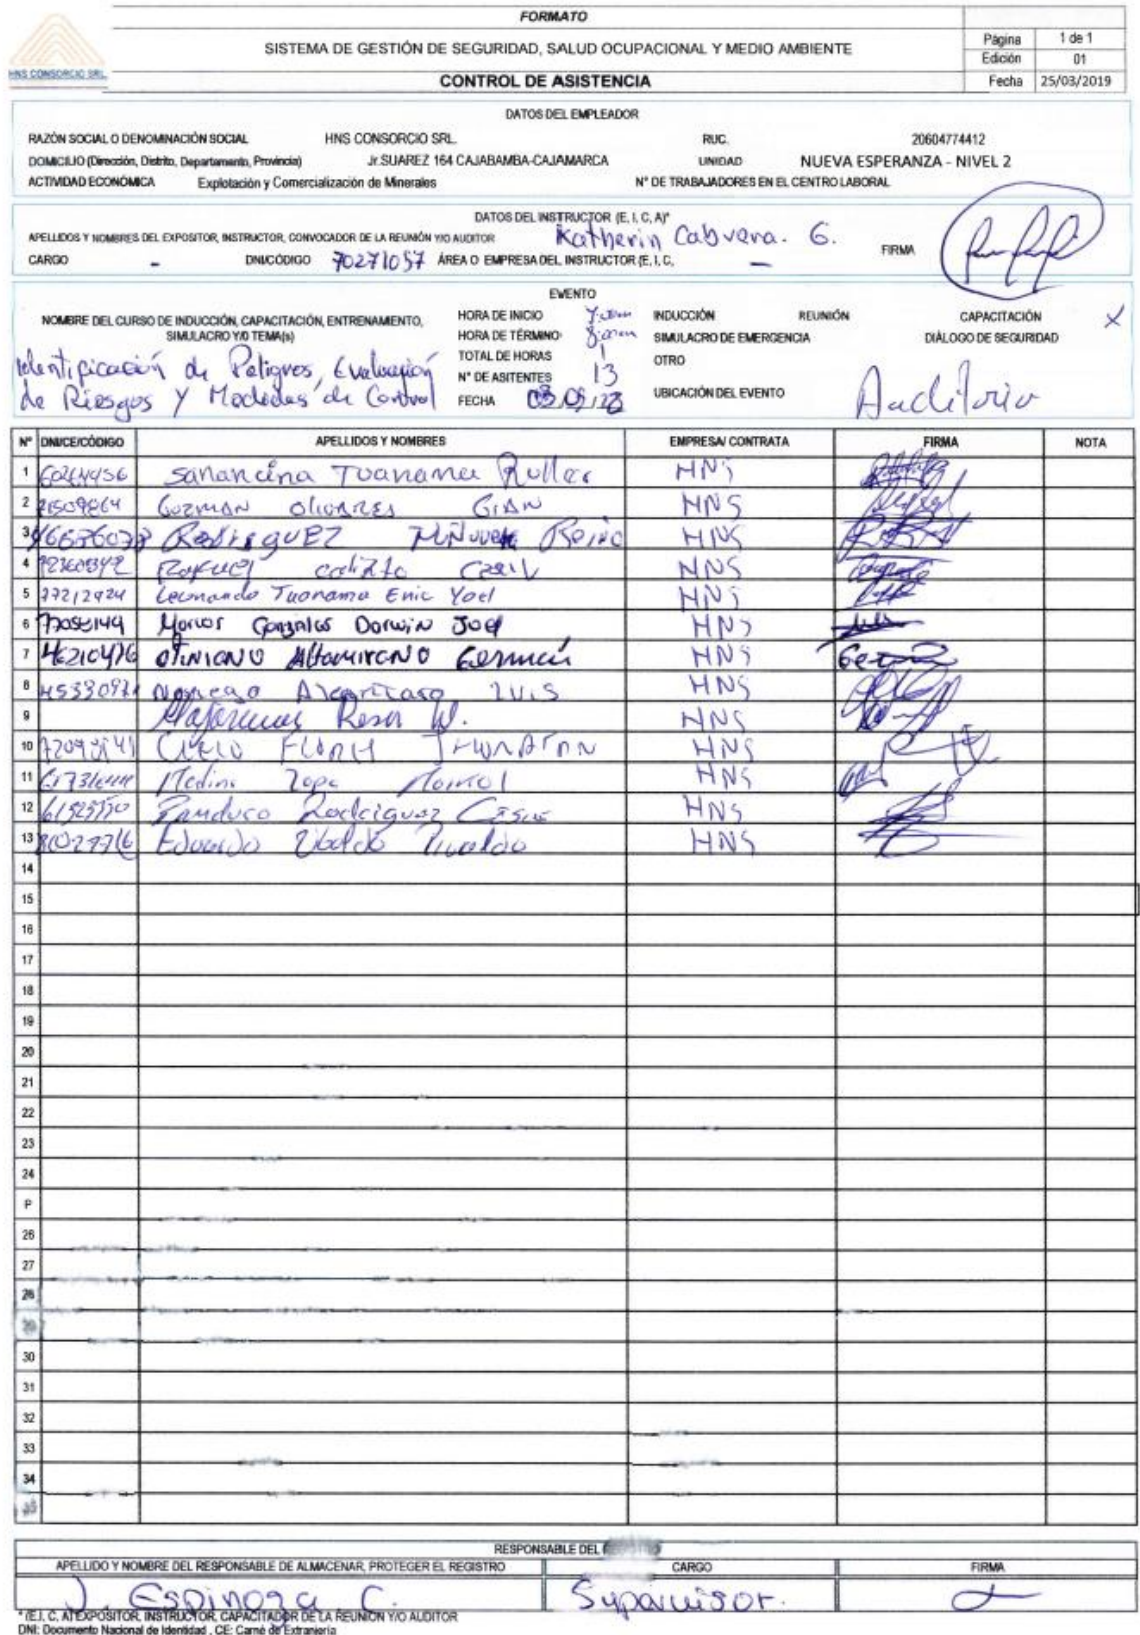 FORMATO
HNS CONSORCIO SRL.
SISTEMA DE GESTIÓN DE SEGURIDAD, SALUD OCUPACIONAL Y MEDIO AMBIENTE
CONTROL DE ASISTENCIA
Página 1 de 1
Edición 01
Fecha 25/03/2019
DATOS DEL EMPLEADOR
RAZÓN SOCIAL O DENOMINACIÓN SOCIAL HNS CONSORCIO SRL. RUC. 20604774412
DOMICILIO (Dirección, Distrito, Departamento, Provincia) Jr.SUAREZ 164 CAJABAMBA-CAJAMARCA UNIDAD NUEVA ESPERANZA - NIVEL 2
ACTIVIDAD ECONÓMICA Explotación y Comercialización de Minerales N° DE TRABAJADORES EN EL CENTRO LABORAL
DATOS DEL INSTRUCTOR (E, I, C, A)*
APELLIDOS Y NOMBRES DEL EXPOSITOR, INSTRUCTOR, CONVOCADOR DE LA REUNIÓN Y/O AUDITOR Katherin Cabrera. G. FIRMA
CARGO - DNI/CÓDIGO 70271057 ÁREA O EMPRESA DEL INSTRUCTOR (E, I, C, -
EVENTO
NOMBRE DEL CURSO DE INDUCCIÓN, CAPACITACIÓN, ENTRENAMIENTO, SIMULACRO Y/O TEMA(s)
Identificación de Peligros, Evaluación
de Riesgos y Medidas de Control
HORA DE INICIO
HORA DE TÉRMINO
TOTAL DE HORAS 1
N° DE ASITENTES 13
FECHA
INDUCCIÓN REUNIÓN CAPACITACIÓN X
SIMULACRO DE EMERGENCIA DIÁLOGO DE SEGURIDAD
OTRO
UBICACIÓN DEL EVENTO Auditorio
N° DNI/CE/CÓDIGO APELLIDOS Y NOMBRES EMPRESA/ CONTRATA FIRMA NOTA
1 Tuanama HNS
2 Guzman Olivares Gian HNS
3 Rodriguez HNS
4 HNS
5 77212924 Leonardo Tuanama Eric Yoel HNS
6 Gonzales Darwin Joel HNS
7 46210476 Altamirano German HNS
8 Luis HNS
9 HNS
10 HNS
11 Medina HNS
12 Panduro Rodriguez HNS
13 Eduardo HNS
14
15
16
17
18
19
20
21
22
23
24
P
26
27
28
29
30
31
32
33
34
35
RESPONSABLE DEL
APELLIDO Y NOMBRE DEL RESPONSABLE DE ALMACENAR, PROTEGER EL REGISTRO CARGO FIRMA
J. Espinoza C. Supervisor.
* (E,I, C, A) EXPOSITOR, INSTRUCTOR, CAPACITADOR DE LA REUNIÓN Y/O AUDITOR
DNI: Documento Nacional de Identidad , CE: Carné de Extranjería